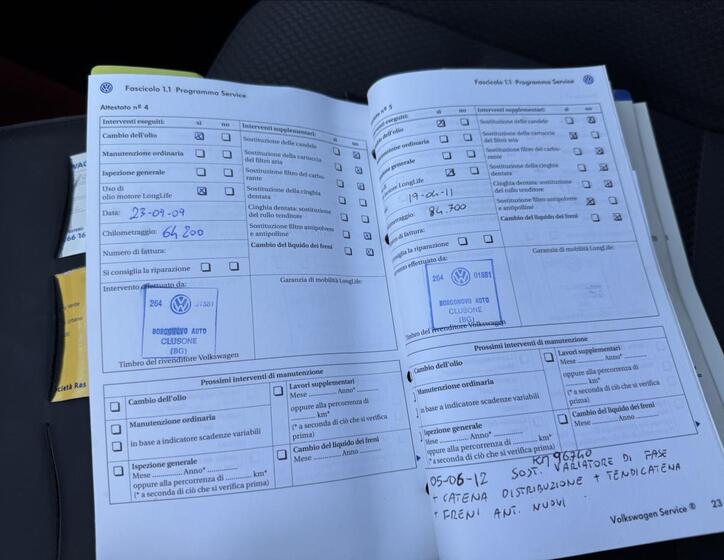 Fascicolo 1.1 Programma Service
Attestato nº 4
Interventi eseguiti: sì no
Interventi supplementari: sì no
Cambio dell'olio
Manutenzione ordinaria
Ispezione generale
Uso di
olio motore LongLife
Data: 23-09-09
Chilometraggio: 64 200
Numero di fattura:
Si consiglia la riparazione
Sostituzione delle candele
Sostituzione della cartuccia
del filtro aria
Sostituzione filtro del carbu-
rante
Sostituzione della cinghia
dentata
Cinghia dentata: sostituzione
del rullo tenditore
Sostituzione filtro antipolvere
e antipolline
Cambio del liquido dei freni
Intervento effettuato da:
Garanzia di mobilità LongLife:
264 01581
BORGONOVO AUTO
CLUSONE
(BG)
Timbro del rivenditore Volkswagen
Prossimi interventi di manutenzione
Cambio dell'olio
Manutenzione ordinaria
in base a indicatore scadenze variabili
Ispezione generale
Mese Anno*
oppure alla percorrenza di km*
(* a seconda di ciò che si verifica prima)
Lavori supplementari
Mese Anno*
oppure alla percorrenza di
km*
(* a seconda di ciò che si verifica
prima)
Cambio del liquido dei freni
Mese Anno
Fascicolo 1.1 Programma Service
nº 5
eseguiti: sì no
Interventi supplementari: sì no
dell'olio
ordinaria
generale
LongLife
19-04-11
84.700
di fattura:
la riparazione
Sostituzione delle candele
Sostituzione della cartuccia
del filtro aria
Sostituzione filtro del carbu-
rante
Sostituzione della cinghia
dentata
Cinghia dentata: sostituzione
del rullo tenditore
Sostituzione filtro antipolvere
e antipolline
Cambio del liquido dei freni
effettuato da:
Garanzia di mobilità LongLife:
264 01581
BORGONOVO AUTO
CLUSONE
(BG)
Timbro del rivenditore Volkswagen
Prossimi interventi di manutenzione
Cambio dell'olio
Manutenzione ordinaria
in base a indicatore scadenze variabili
Ispezione generale
Mese Anno*
oppure alla percorrenza di km*
(* a seconda di ciò che si verifica prima)
Lavori supplementari
Mese Anno*
oppure alla percorrenza di
km*
(* a seconda di ciò che si verifica
prima)
Cambio del liquido dei freni
Mese Anno
KM 96740
05-06-12 SOST. VARIATORE DI FASE
+ CATENA DISTRIBUZIONE + TENDICATENA
+ FRENI ANT. NUOVI.
Volkswagen Service ®
23